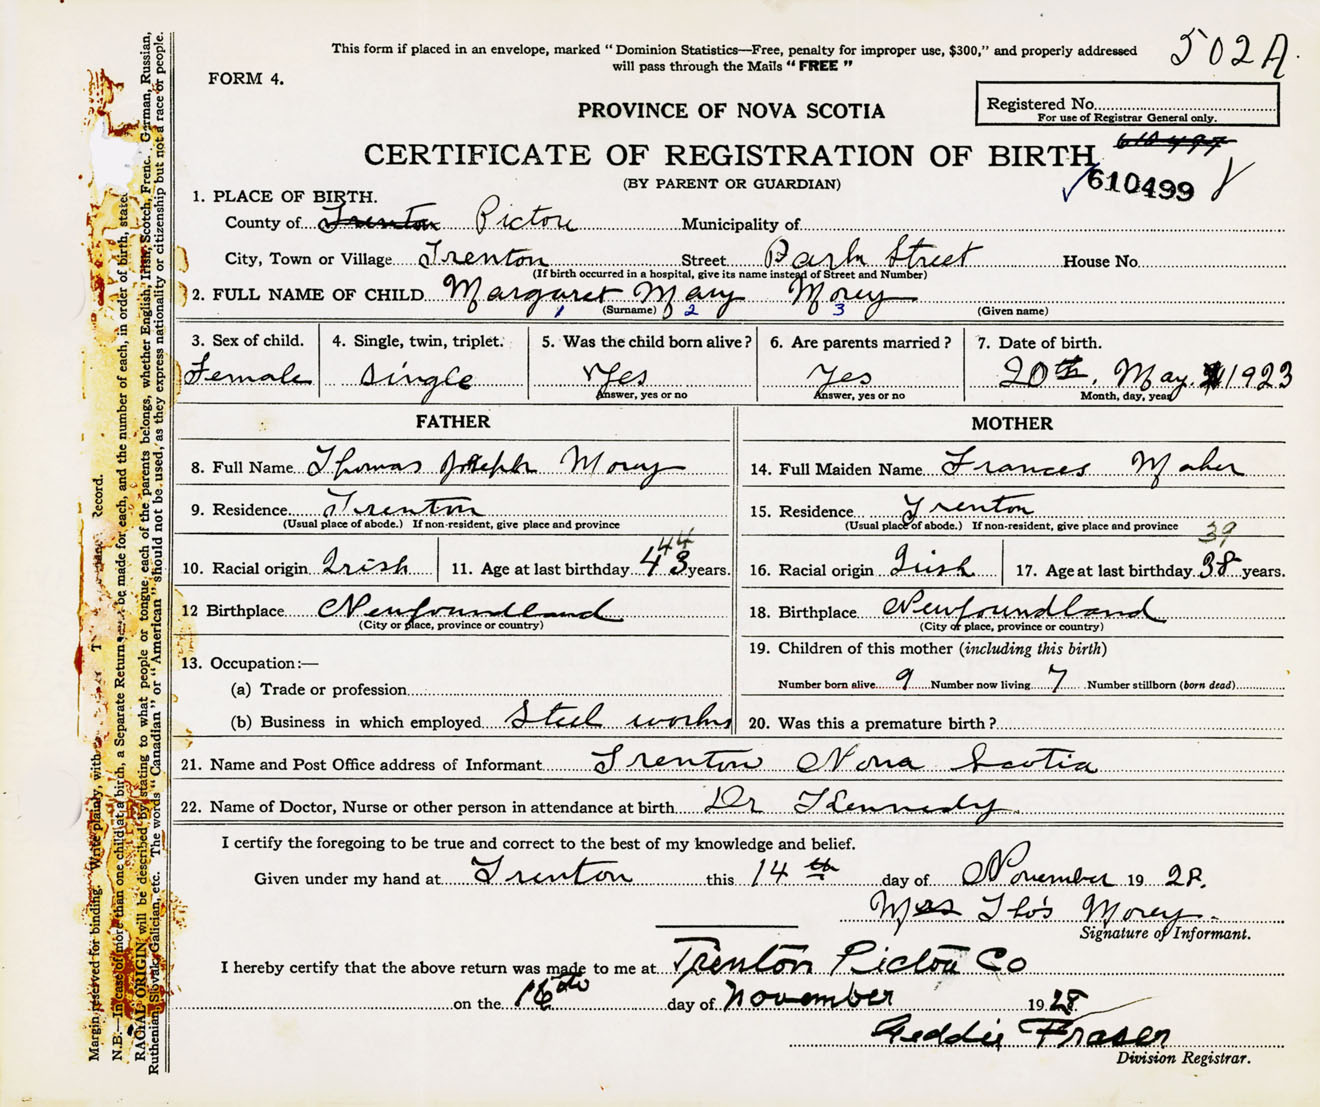 This form if placed in an envelope, marked “Dominion Statistics—Free, penalty for improper use, $300,” and properly addressed
will pass through the Mails “FREE”
502A
FORM 4.
PROVINCE OF NOVA SCOTIA
Registered No.
For use of Registrar General only.
CERTIFICATE OF REGISTRATION OF BIRTH
(BY PARENT OR GUARDIAN)
610499
1. PLACE OF BIRTH.
County of Trenton Pictou Municipality of
City, Town or Village Trenton Street Park Street House No
(If birth occurred in a hospital, give its name instead of Street and Number)
2. FULL NAME OF CHILD Margaret Mary Morey
1 (Surname) 2 3 (Given name)
3. Sex of child. 4. Single, twin, triplet. 5. Was the child born alive? 6. Are parents married? 7. Date of birth.
Female Single Yes Yes 20th. May. 1923
Answer, yes or no Answer, yes or no Month, day, year
FATHER MOTHER
8. Full Name Thomas Joseph Morey 14. Full Maiden Name Frances Maher
9. Residence Trenton 15. Residence Trenton
(Usual place of abode.) If non-resident, give place and province (Usual place of abode.) If non-resident, give place and province
44 39
10. Racial origin Irish 11. Age at last birthday 43 years. 16. Racial origin Irish 17. Age at last birthday 38 years.
12 Birthplace Newfoundland 18. Birthplace Newfoundland
(City or place, province or country) (City or place, province or country)
13. Occupation:— 19. Children of this mother (including this birth)
(a) Trade or profession Number born alive 9 Number now living 7 Number stillborn (born dead)
(b) Business in which employed Steel works 20. Was this a premature birth?
21. Name and Post Office address of Informant Trenton Nova Scotia
22. Name of Doctor, Nurse or other person in attendance at birth Dr Kennedy
I certify the foregoing to be true and correct to the best of my knowledge and belief.
Given under my hand at Trenton this 14th day of November 1928.
Mrs Tho's Morey.
Signature of Informant.
I hereby certify that the above return was made to me at Trenton Pictou Co
on the 16 day of November 1928
Geddie Fraser
Division Registrar.
Margin reserved for binding. Write plainly, with Record.
N.B.—In case of more than one child at a birth, a Separate Return be made for each, and the number of each, in order of birth, stated
RACIAL ORIGIN will be described by stating to what people or tongue each of the parents belongs, whether English, Irish, Scotch, French, German, Russian,
Ruthenian, Slovak, Galician, etc. The words “Canadian” or “American” should not be used, as they express nationality or citizenship but not a race or people.